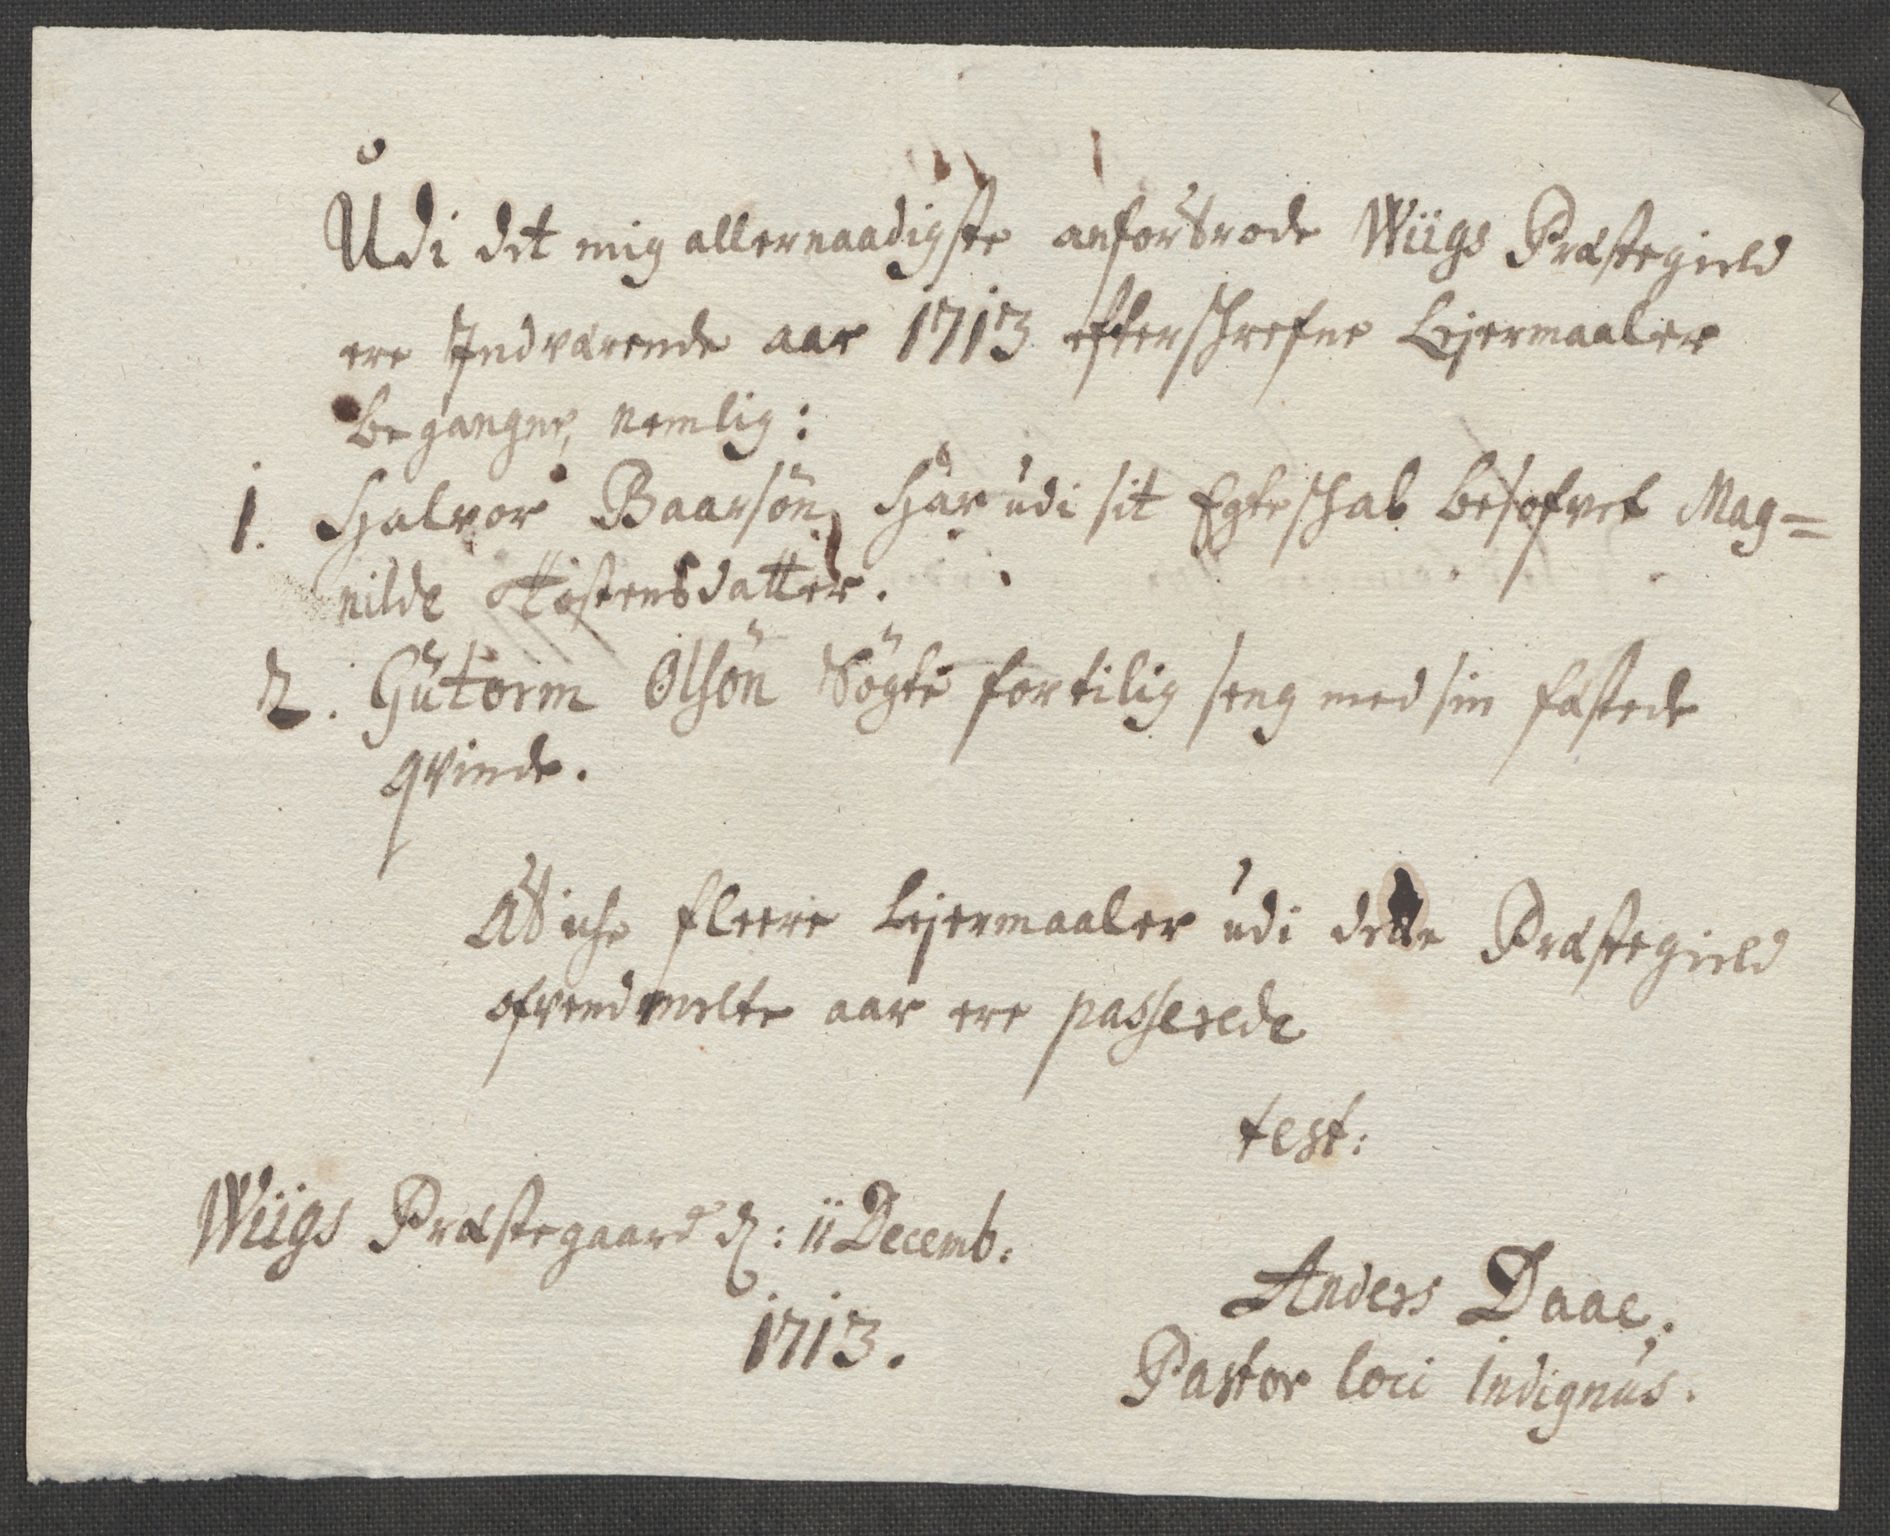 Udi det mig allernaadigste anfortrode Wiigs Præstegield
ere Indværende aar 1713 efterschrefne Lejermaaler
begangne, nemlig:
1. Halvor Baarsøn, har udi sit Egteschab besofvet Mag=
nilde Tostensdatter.
2. Gutorm Olsøn Søgte for tilig seng med sin fæstede
qvinde.
At iche fleere Lejermaaler udi dette Præstegield
ofvenmelte aar ere passerede
test:
Wiigs Præstegaard d: 11 Decemb:
1713.
Anders Daae.
Pastor loci indignus.